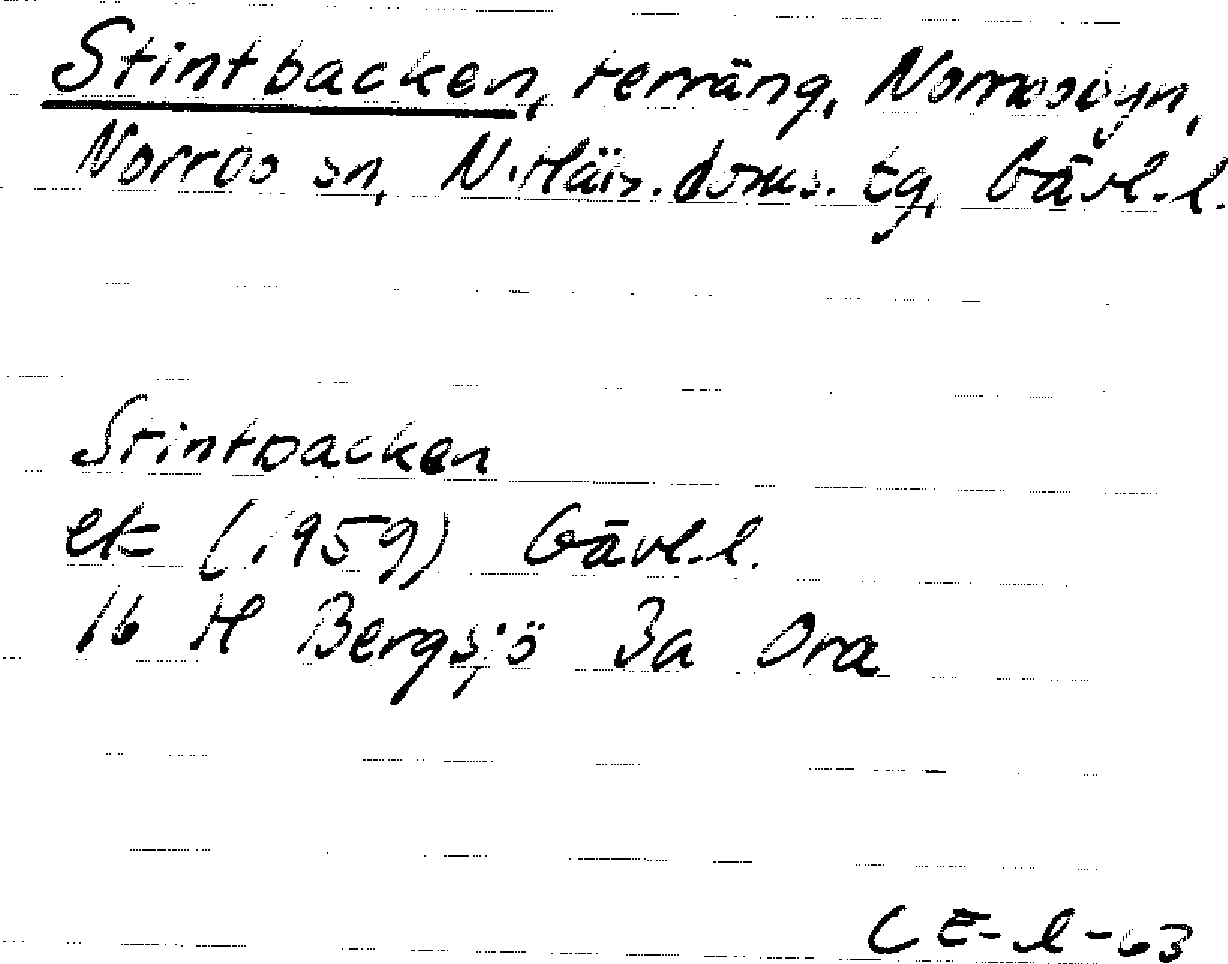 Stintbacken, terräng, Norrbobyn,
Norrbo sn, N. Häls. doms. tg, Gävl. l.
Stintbacken
ek (1959) Gävl. l.
16 H Bergsjö 3a Ora
CE-l-63